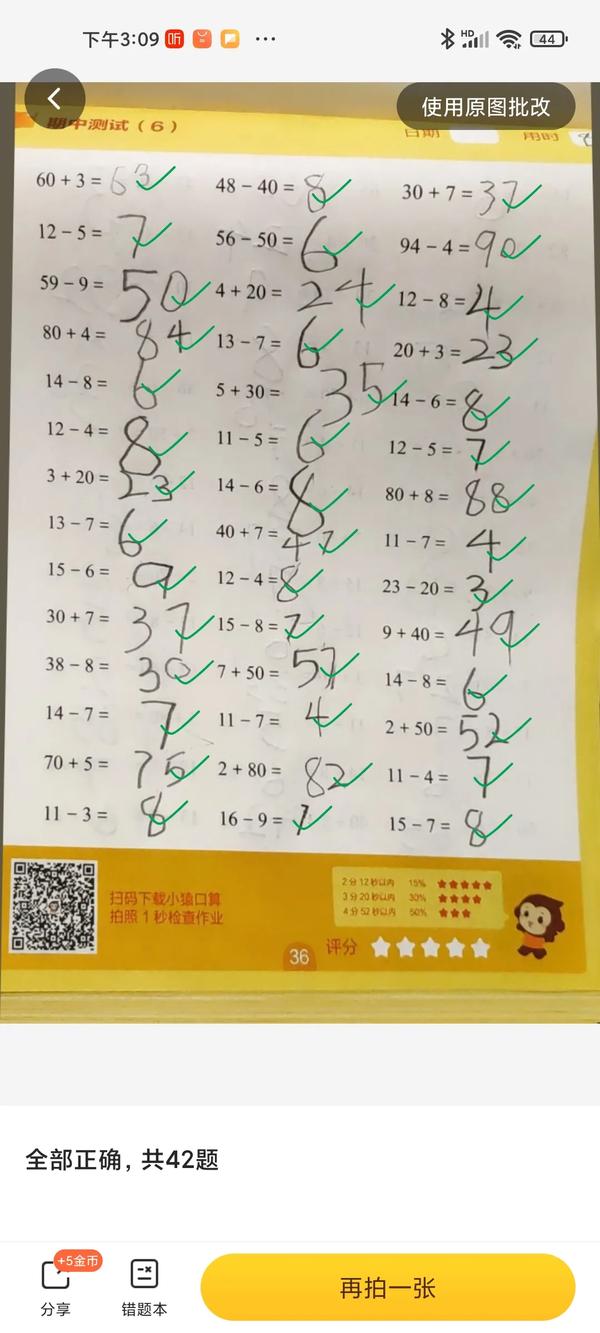 下午3:09 听 HD 44
使用原图批改
期中测试（6） 日期 用时
60 + 3 = 63 48 − 40 = 8 30 + 7 = 37
12 − 5 = 7 56 − 50 = 6 94 − 4 = 90
59 − 9 = 50 4 + 20 = 24 12 − 8 = 4
80 + 4 = 84 13 − 7 = 6 20 + 3 = 23
14 − 8 = 6 5 + 30 = 35 14 − 6 = 8
12 − 4 = 8 11 − 5 = 6 12 − 5 = 7
3 + 20 = 23 14 − 6 = 8 80 + 8 = 88
13 − 7 = 6 40 + 7 = 47 11 − 7 = 4
15 − 6 = 9 12 − 4 = 8 23 − 20 = 3
30 + 7 = 37 15 − 8 = 7 9 + 40 = 49
38 − 8 = 30 7 + 50 = 57 14 − 8 = 6
14 − 7 = 7 11 − 7 = 4 2 + 50 = 52
70 + 5 = 75 2 + 80 = 82 11 − 4 = 7
11 − 3 = 8 16 − 9 = 7 15 − 7 = 8
扫码下载小猿口算
拍照 1 秒检查作业
2分12秒以内 15% ★★★★★
3分20秒以内 30% ★★★★
4分52秒以内 50% ★★★
36 评分
全部正确，共42题
+5金币
分享 错题本 再拍一张